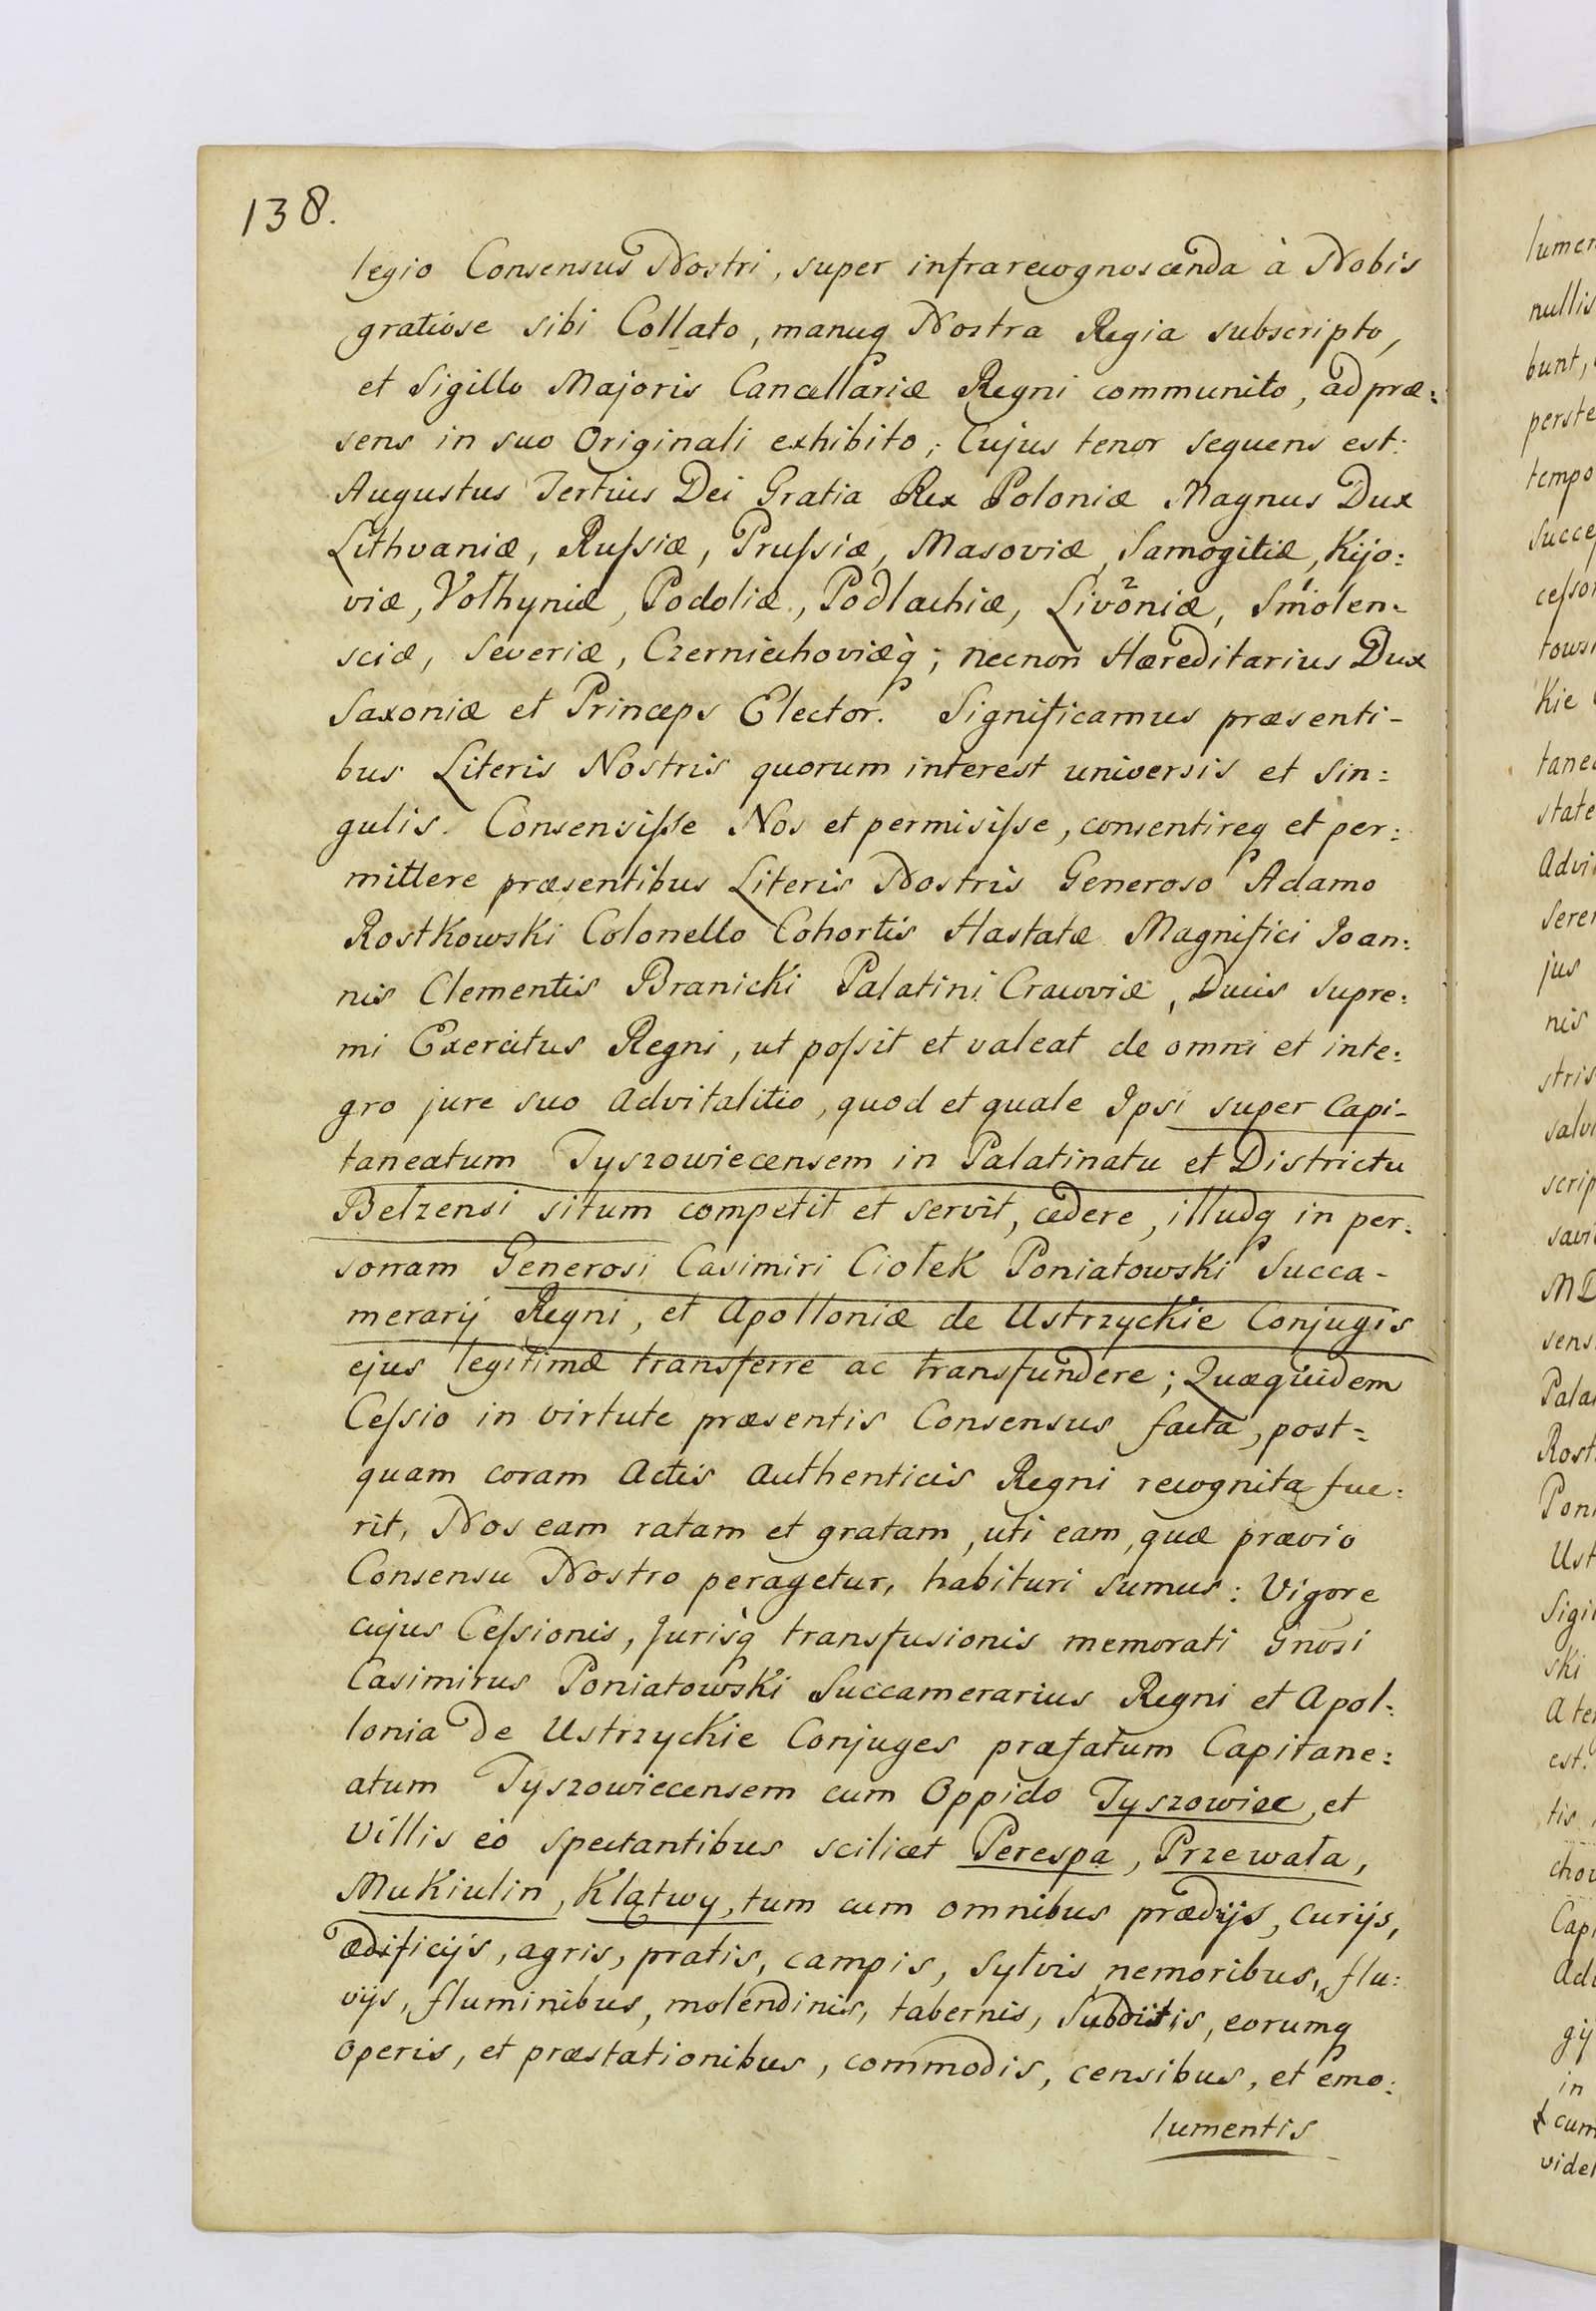 138.
legio Consensus Nostri, super infrarecognoscenda à Nobis
gratiose sibi Collato, manuq Nostra Regia subscripto,
et Sigillo Majoris Cancellariæ Regni communito, ad præ:
sens in suo Originali exhibito; Cujus tenor sequens est.
Augustus Tertius Dei Gratia Rex Poloniæ Magnus Dux
Lithvaniæ, Ruſsiæ, Pruſsiæ, Masoviæ, Samogitiæ, Kijo:
viæ, Volhyniæ, Podoliæ, Podlachiæ, Livoniæ, Smolen:
sciæ, Severiæ, Czerniechoviæq̀; necnon Hæreditarius Dux
Saxoniæ et Princeps Elector. Significamus præsenti-
bus Literis Nostris quorum interest universis et sin:
gulis. Consensiſse Nos et permisiſse, consentireq et per:
mittere præsentibus Literis Nostris Generoso Adamo
Rostkowski Colonello Cohortis Hastatæ Magnifici Joan:
nis Clementis Branicki Palatini Cracoviæ, Ducis supre:
mi Exercitus Regni, ut poſsit et valeat de omni et inte:
gro jure suo advitalitio, quod et quale Ipsi super Capi-
taneatum Tyszowiecensem in Palatinatu et Districtu
Belzensi situm competit et servit, cedere, illudq in per:
sonam Generosi Casimiri Ciołek Poniatowski Succa-
merarij Regni, et Apolloniæ de Ustrzyckie Conjugis
ejus legitimæ transferre ac transfundere; Quæquidem
Ceſsio in virtute præsentis Consensus facta, post-
quam coram Actis Authenticis Regni recognita fue:
rit, Nos eam ratam et gratam, uti eam, quæ prævio
Consensu Nostro peragetur, habituri sumus: Vigore
cujus Ceſsionis, Jurisq̀ transfusionis memorati Gnosi
Casimirus Poniatowski Succamerarius Regni et Apol:
lonia de Ustrzyckie Conjuges præfatum Capitane:
atum Tyszowiecensem cum Oppido Tyszowiec, et
Villis eò spectantibus scilicet Perespa, Przewała,
Mukiulin, Klątwy, tum cum omnibus prædijs, curijs,
ædificijs, agris, pratis, campis, sylvis, nemoribus, flu:
vijs, fluminibus, molendinis, tabernis, Subditis, eorumq
operis, et præstationibus, commodis, censibus, et emo:
lumentis
lumen
nullis
bunt,
perste
tempo
Succeſ
ceſsor
towsk
Kie
tanea
state
Advi
Seren
jus
nis
stris
salvi
scrip
savi
MD
sens
Pala
Rost
Poni
Ust
Sigi
ski
A te
est.
tis
chov
Capi
Adv
gij
in
cum
videl